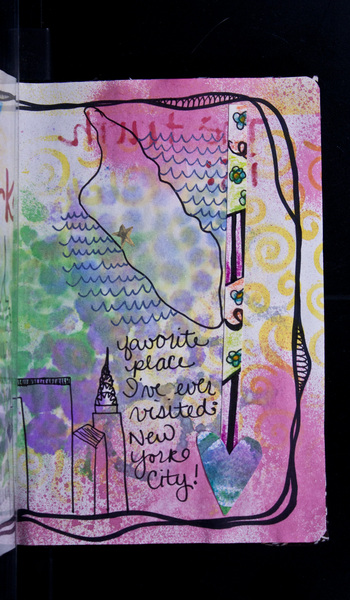 favorite
place
I've ever
visited:
New
York
City!